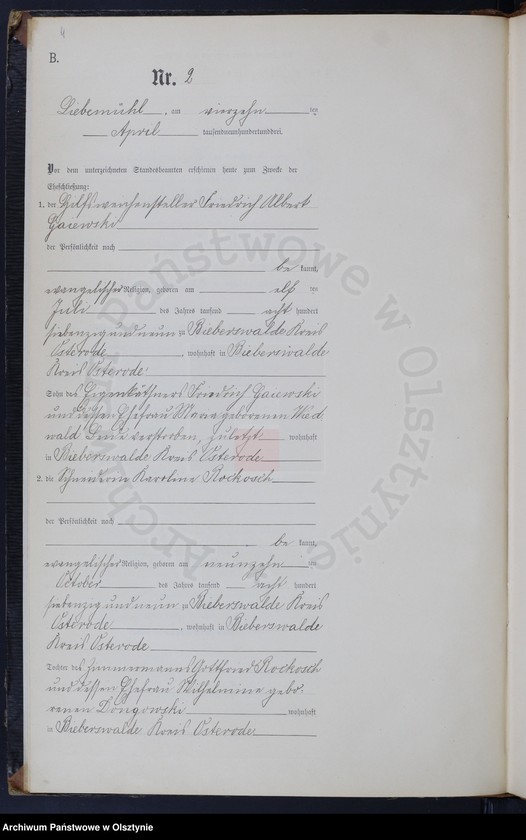 4
B.
Nr. 2
Liebemühl, am vierzehn ten
April tausendneunhundertunddrei.
Vor dem unterzeichneten Standesbeamten erschienen heute zum Zwecke der
Eheschließung:
1. der Hilfsweichensteller Friedrich Albert
Gaiewski
der Persönlichkeit nach
be kannt,
evangelischer Religion, geboren am elf ten
Juli des Jahres tausend acht hundert
siebenzig und neun zu Bieberswalde Kreis
Osterode, wohnhaft in Bieberswalde
Kreis Osterode
Sohn des Eigenkäthners Friedrich Gaiewski
und dessen Ehefrau Maria geborenen
wald Beide verstorben, zuletzt wohnhaft
in Bieberswalde Kreis Osterode
2. die Schneiderin Karoline Rockosch
der Persönlichkeit nach
be kannt,
evangelischer Religion, geboren am neunzehn ten
October des Jahres tausend acht hundert
siebenzig und neun zu Bieberswalde Kreis
Osterode, wohnhaft in Bieberswalde
Kreis Osterode
Tochter des Zimmermanns Gottfried Rockosch
und dessen Ehefrau Wilhelmine gebo-
renen Dongowski wohnhaft
in Bieberswalde Kreis Osterode
Archiwum Państwowe w Olsztynie
Archiwum Państwowe w Olsztynie